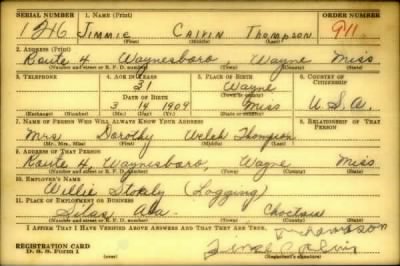 SERIAL NUMBER 1. NAME (Print) ORDER NUMBER
1216 Jimmie Calvin Thompson 911
(First) (Middle) (Last)
2. ADDRESS (Print)
Route 4 Waynesboro Wayne Miss
(Number and street or R. F. D. number) (Town) (County) (State)
3. TELEPHONE 4. AGE IN YEARS 5. PLACE OF BIRTH 6. COUNTRY OF CITIZENSHIP
31 Wayne
DATE OF BIRTH (Town or county)
3 14 1909 Miss U.S.A.
(Exchange) (Number) (Mo.) (Day) (Yr.) (State or country)
7. NAME OF PERSON WHO WILL ALWAYS KNOW YOUR ADDRESS 8. RELATIONSHIP OF THAT PERSON
Mrs Dorothy Welch Thompson
(Mr., Mrs., Miss) (First) (Middle) (Last)
9. ADDRESS OF THAT PERSON
Route 4, Waynesboro, Wayne Miss
(Number and street or R. F. D. number) (Town) (County) (State)
10. EMPLOYER'S NAME
Willie Stokely (Logging)
11. PLACE OF EMPLOYMENT OR BUSINESS
Silas Ala Choctaw
(Number and street or R. F. D. number) (Town) (County) (State)
I AFFIRM THAT I HAVE VERIFIED ABOVE ANSWERS AND THAT THEY ARE TRUE.
REGISTRATION CARD
D. S. S. Form 1